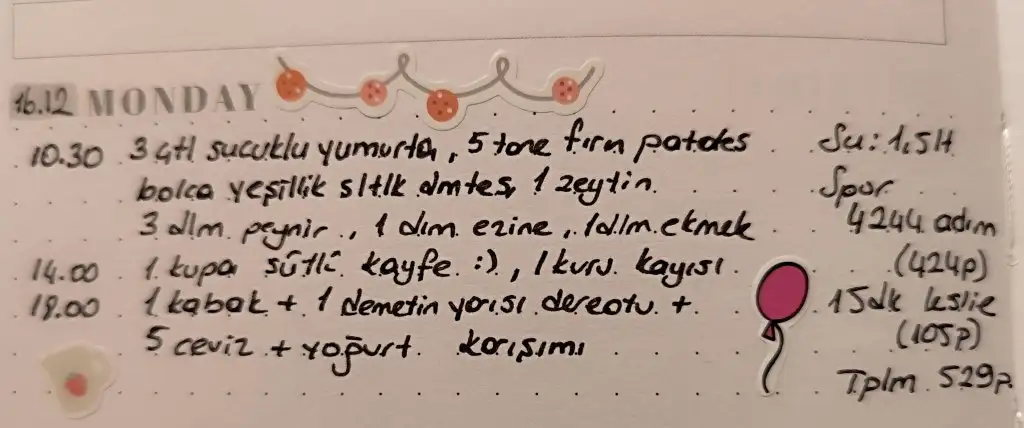 16.12 MONDAY
10.30 3 çtl sucuklu yumurta, 5 tane fırın patates
bolca yeşillik sltlk dmtes, 1 zeytin
3 dlm peynir, 1 dlm ezine, 1 dlm ekmek
14.00 1 kupa sütlü kayfe :), 1 kuru kayısı
18.00 1 kabak + 1 demetin yarısı dereotu +
5 ceviz + yoğurt karışımı
Su: 1,5 lt
Spor
4244 adım
(424p)
15dk leslie
(105p)
Tplm 529p